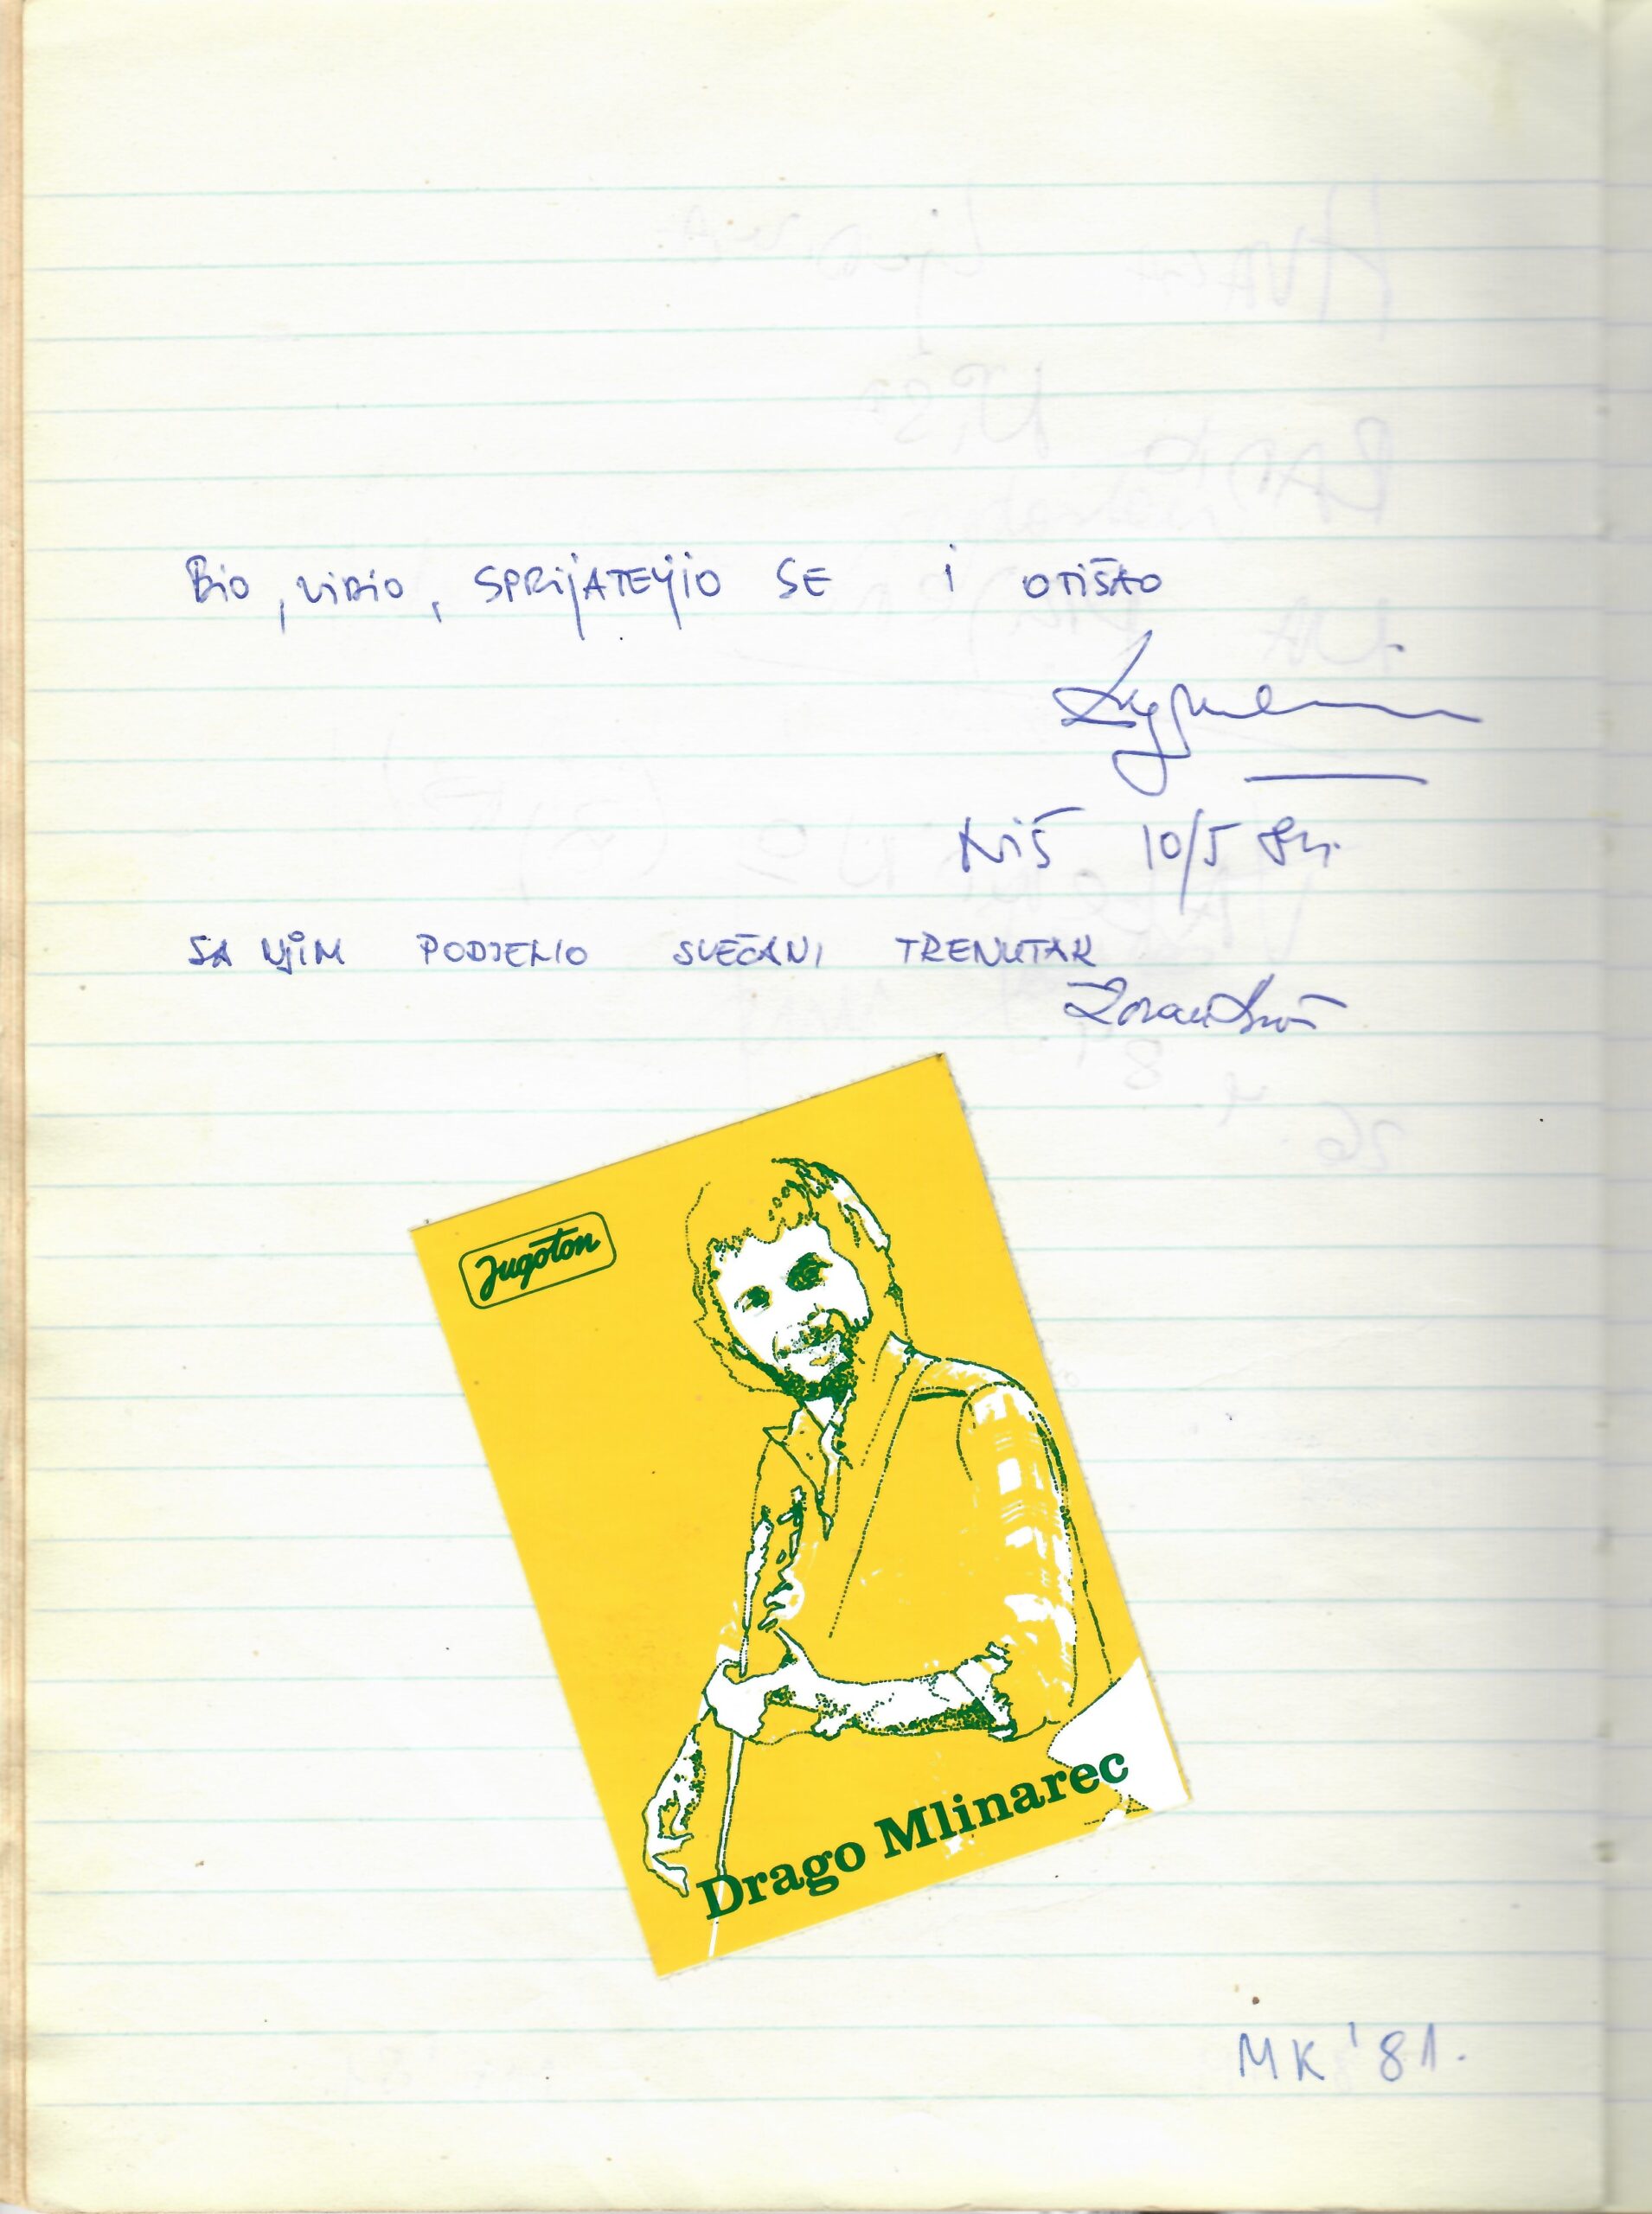 BIO, VIDIO, SPRIJATELJIO SE I OTIŠAO
NIŠ 10/5 81.
SA NJIM PODJELIO SVEČANI TRENUTAK
Zoran
Jugoton
Drago Mlinarec
MK '81.